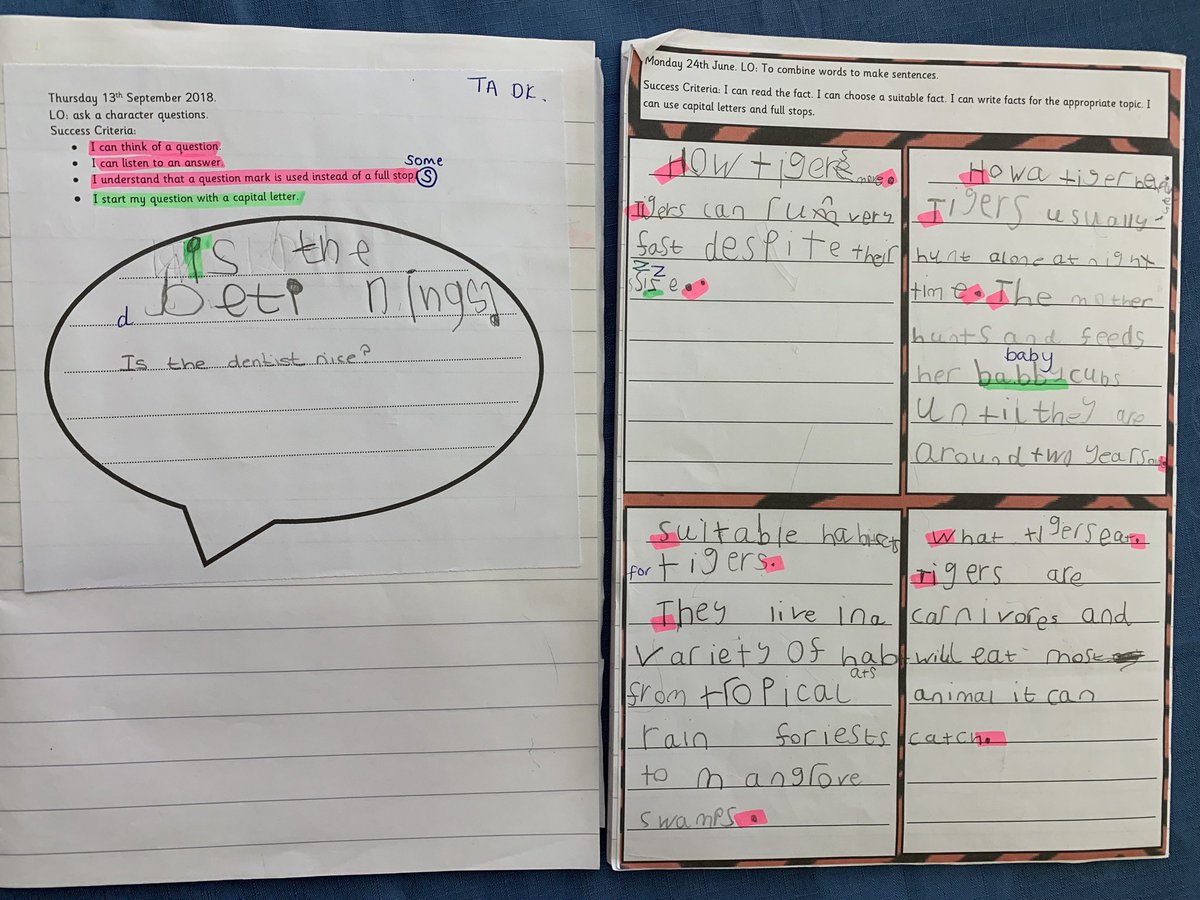 TA DK.
Thursday 13th September 2018.
LO: ask a character questions.
Success Criteria:
I can think of a question.
I can listen to an answer.
some
I understand that a question mark is used instead of a full stop. S
I start my question with a capital letter.
is the
d
Is the dentist nise?
Monday 24th June. LO: To combine words to make sentences.
Success Criteria: I can read the fact. I can choose a suitable fact. I can write facts for the appropriate topic. I
can use capital letters and full stops.
How tigers move.
Tigers can run very
fast despite their
z z
size.
How a tiger
Tigers usually
hunt alone at night
time. The mother
hunts and feeds
baby
her babby cubs
Until they are
around two years
Suitable
for tigers.
They live in a
variety of hab
ats
from tropical
rain foriests
to mangrove
swamps.
What tigers eat.
Tigers are
carnivores and
will eat most
animal it can
catch.